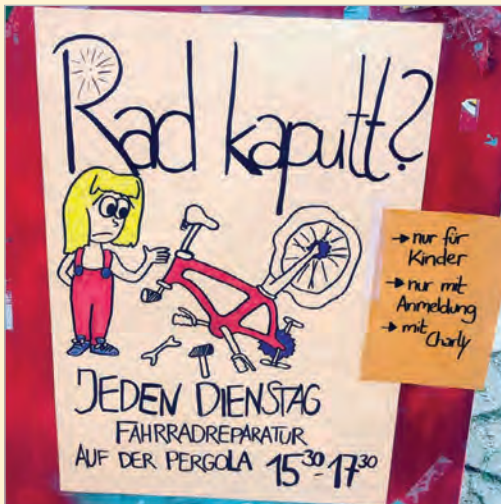 Rad kaputt?
→ nur für
Kinder
→ nur mit
Anmeldung
→ mit Charly
JEDEN DIENSTAG
FAHRRADREPARATUR
AUF DER PERGOLA 15³⁰-17³⁰